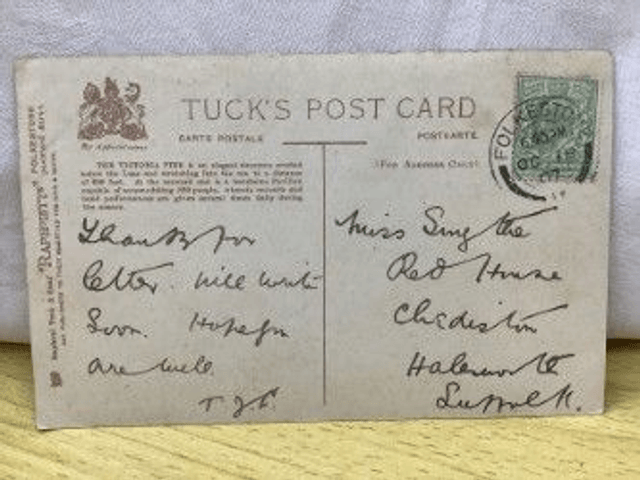 TUCK'S POST CARD
CARTE POSTALE
POSTKARTE.
By Appointment
(For Address Only)
FOLKESTO
OC 18
07
THE VICTORIA PIER is an elegant structure erected
below the Leas and stretching into the sea to a distance
of
feet. At the seaward end is a handsome Pavilion
capable of accommodating
people, where concerts and
band performances are given several times daily during
the season.
Thanks for
letter. Will write
Soon. Hope you
are well
Miss Smythe
Red House
Chediston
Halesworth
Suffolk.
Raphael Tuck & Sons' "RAPHOTYPE"
FOLKESTONE